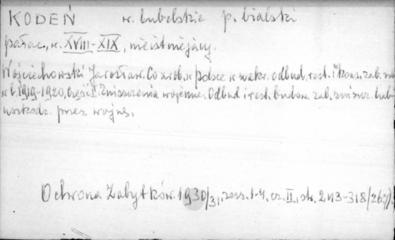 KODEŃ w. lubelskie p. bialski
pałac, w. XVIII-XIX, nieistniejący.
Wojciechowski Jarosław. Co zrob. w Polsce w zakr. odbud. rest. i kons. zab.
w l. 1919-1920, Część I. Zniszczenia wojenne. Odbud. i rest. budow. zab. zniszcz. lub
uszkodz. przez wojnę.
Ochrona Zabytków. 1930/31, zesz. 1-4, cz. II, str. 243-318 /267/.